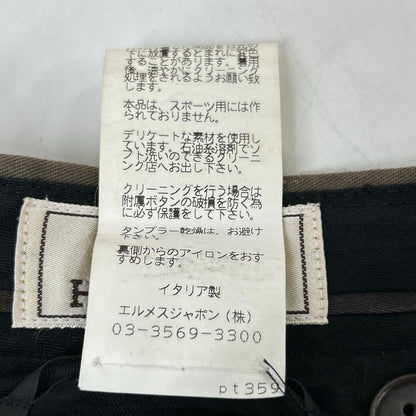 下に放置するとまれに変色
することがあります。着用
後、速やかにクリーニング
処理をされるようお願い致
します。
本品は、スポーツ用には作
られておりません。
デリケートな素材を使用し
ています。石油系溶剤でソ
フト洗いのできるクリーニ
ング店へお出し下さい。
クリーニングを行う場合は
附属ボタンの破損を防ぐ為
に必ず保護をして下さい。
タンブラー乾燥は、お避け
下さい。
裏側からのアイロンをおす
すめします。
イタリア製
エルメスジャポン(株)
03-3569-3300
pt359
H